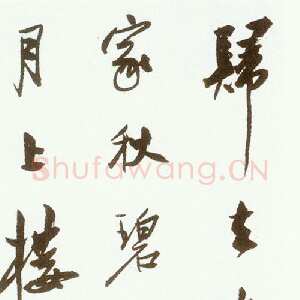 歸去
家秋碧
月上樓
Shufawang.CN